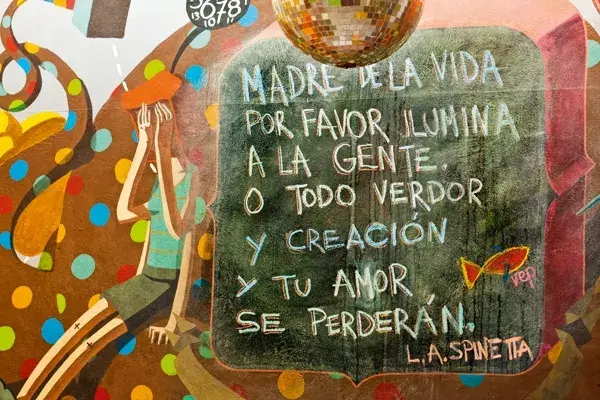 5678
MADRE DE LA VIDA
POR FAVOR ILUMINA
A LA GENTE.
O TODO VERDOR
Y CREACIÓN
Y TU AMOR
SE PERDERÁN.
L.A. SPINETTA
rep